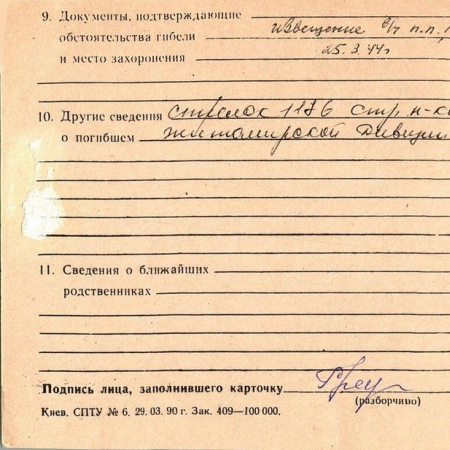 9. Документы, подтверждающие
обстоятельства гибели извещение в/ч п.п.
и место захоронения 25.3.44г
10. Другие сведения стрелок 1176 стр. п-к
о погибшем Житомирской Дивизии
11. Сведения о ближайших
родственниках
Подпись лица, заполнившего карточку
(разборчиво)
Киев. СПТУ № 6. 29. 03. 90 г. Зак. 409—100 000.